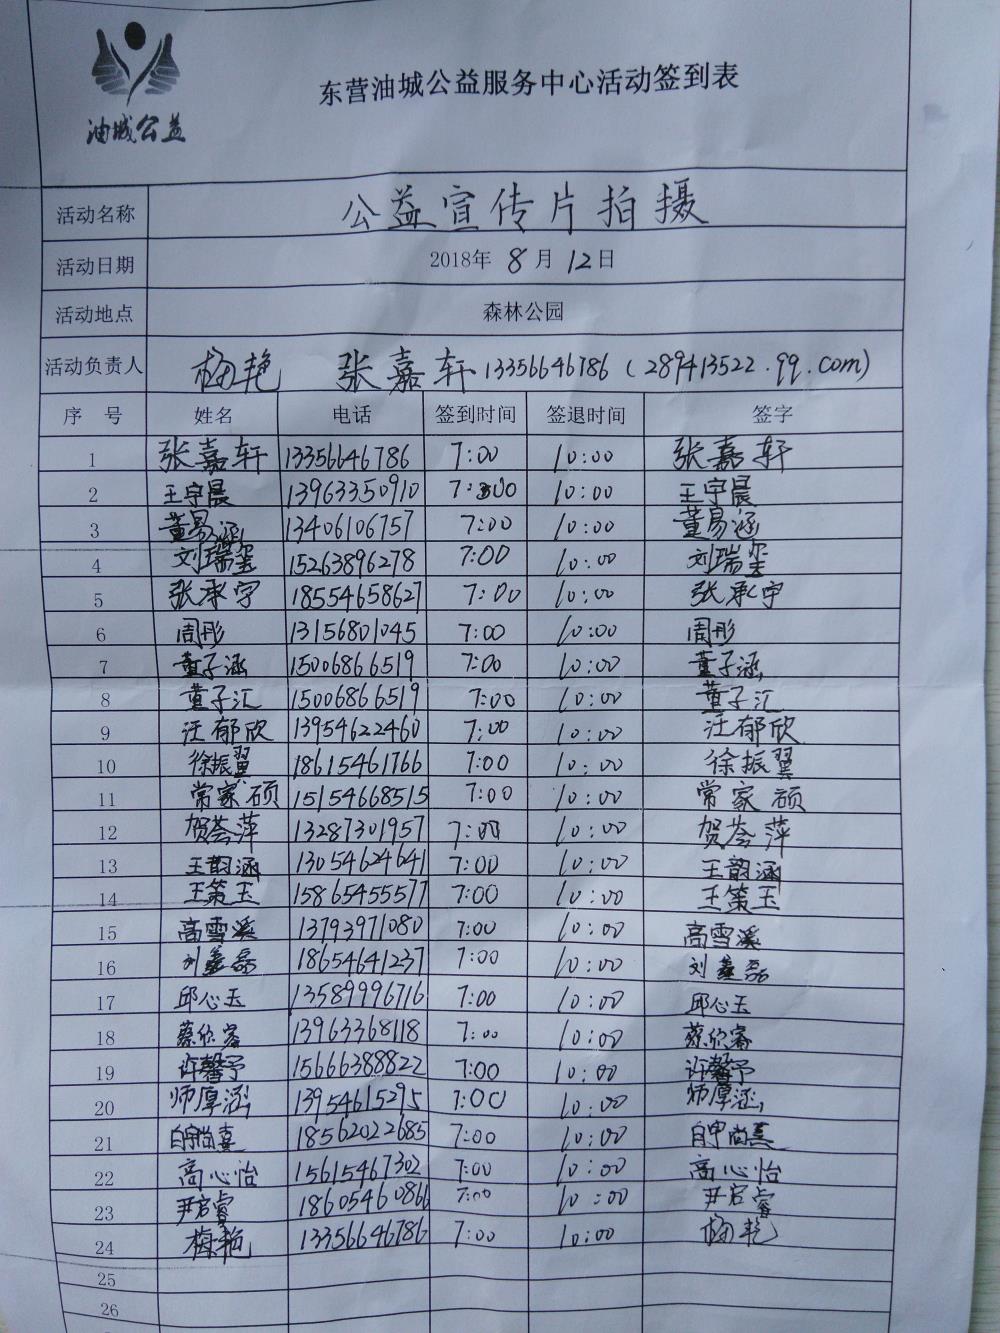 油城公益
东营油城公益服务中心活动签到表
活动名称 公益宣传片拍摄
活动日期 2018年 8 月 12 日
活动地点 森林公园
活动负责人 梅艳 张嘉轩 13356646786 (289413522.qq.com)
序 号 姓名 电话 签到时间 签退时间 签字
1 张嘉轩 13356646786 7:00 10:00 张嘉轩
2 王宇晨 13963350910 7:00 10:00 王宇晨
3 董易涵 13406106757 7:00 10:00 董易涵
4 刘瑞玺 15263896278 7:00 10:00 刘瑞玺
5 张承宇 18554658627 7:00 10:00 张承宇
6 周彤 13156801045 7:00 10:00 周彤
7 董子涵 15006866519 7:00 10:00 董子涵
8 董子汇 15006866519 7:00 10:00 董子汇
9 汪郁欣 13954622460 7:00 10:00 汪郁欣
10 徐振翼 18615461766 7:00 10:00 徐振翼
11 常家硕 15154668515 7:00 10:00 常家硕
12 贺荟萍 13287301957 7:00 10:00 贺荟萍
13 王韵涵 13054624641 7:00 10:00 王韵涵
14 王策玉 15865455577 7:00 10:00 王策玉
15 高雪溪 13793971080 7:00 10:00 高雪溪
16 刘鑫磊 18654641237 7:00 10:00 刘鑫磊
17 邱心玉 13589996716 7:00 10:00 邱心玉
18 蔡欣睿 13963368118 7:00 10:00 蔡欣睿
19 许馨予 15666388822 7:00 10:00 许馨予
20 师厚涵 13954615295 7:00 10:00 师厚涵
21 18562022685 7:00 10:00
22 高心怡 15615467302 7:00 10:00 高心怡
23 尹启睿 18605460866 7:00 10:00 尹启睿
24 梅艳 13356646786 7:00 10:00 梅艳
25
26